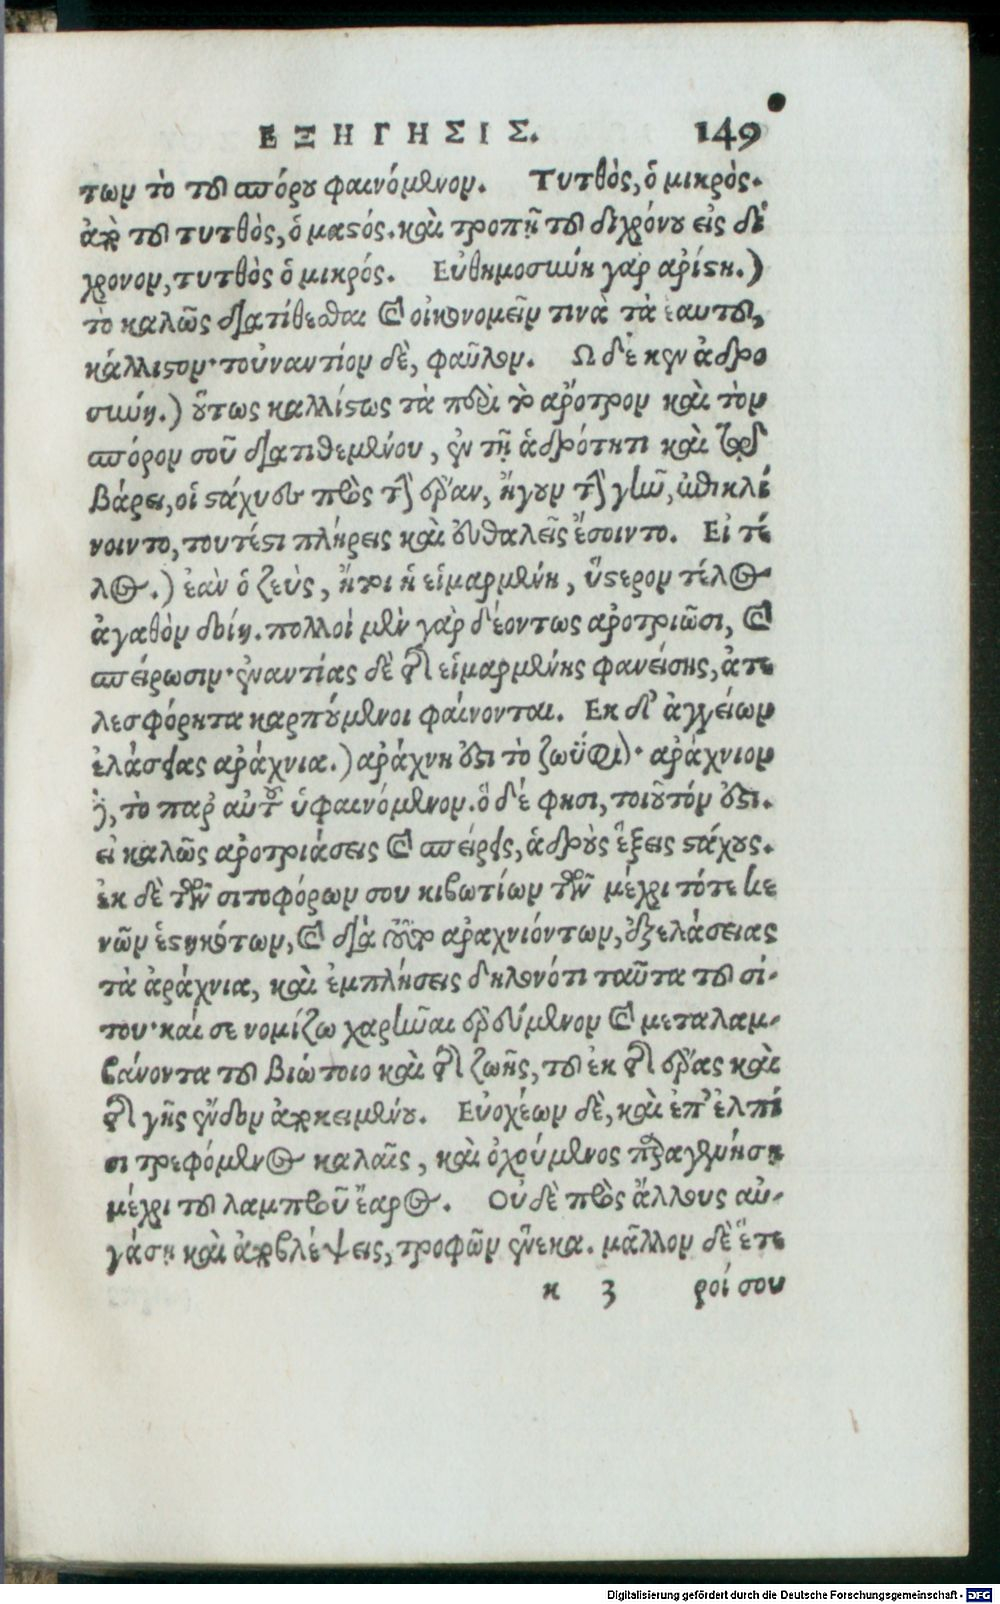 ΕΞΗΓΗΣΙΣ. 149
των τὸ τοῦ σπόρου φαινόμενον. Τυτθὸς, ὁ μικρὸς.
ἀπὸ τοῦ τυτθὸς, ὁ μαστός. καὶ τροπῇ τοῦ διχρόνου εἰς δί
χρονον, τυτθὸς ὁ μικρός. Εὐθημοσύνη γὰρ ἀρίστη.)
τὸ καλῶς διατίθεσθαι καὶ οἰκονομεῖν τινὰ τὰ ἑαυτοῦ,
κάλλιστον· τοὐναντίον δὲ, φαῦλον. Ωδέ κεν ἁδρο
σύνῃ.) οὕτως καλλίστως τὰ περὶ τὸ ἄροτρον καὶ τὸν
σπόρον σοῦ διατιθεμένου, ἐν τῇ ἁδρότητι καὶ τῷ
βάρει, οἱ στάχυες πρὸς τὴν ἔραν, ἤγουν τὴν γῆν, ἐπικλί
νοιντο, τουτέστι πλήρεις καὶ εὐθαλεῖς ἔσοιντο. Εἰ τέ
λος.) ἐὰν ὁ ζεὺς, ἤτοι ἡ εἱμαρμένη, ὕστερον τέλος
ἀγαθὸν δοίη. πολλοὶ μὲν γὰρ δεόντως ἀροτριῶσι, καὶ
σπείρωσιν· ἐναντίας δὲ τῆς εἱμαρμένης φανείσης, ἀτε
λεσφόρητα καρπούμενοι φαίνονται. Εκ δ' ἀγγείων
ἐλάσειας ἀράχνια.) ἀράχνη ἐστὶ τὸ ζωΰφιον· ἀράχνιον
δὲ, τὸ παρ' αὐτοῦ ὑφαινόμενον. ὃ δέ φησι, τοιοῦτόν ἐστι.
εἰ καλῶς ἀροτριάσεις καὶ σπείρεις, ἁδροὺς ἕξεις στάχυς.
ἐκ δὲ τῶν σιτοφόρων σου κιβωτίων τῶν μέχρι τότε κε
νῶν ἑστηκότων, καὶ διὰ τοῦτο ἀραχνιόντων, ἐξελάσειας
τὰ ἀράχνια, καὶ ἐμπλήσεις δηλονότι ταῦτα τοῦ σί-
του· καί σε νομίζω χαρῆναι αἱρούμενον καὶ μεταλαμ-
βάνοντα τοῦ βιώτοιο καὶ τῆς ζωῆς, τοῦ ἐκ τῆς ἔρας καὶ
τῆς γῆς ἔνδον ἀποκειμένου. Εὐοχέων δὲ, καὶ ἐπ' ἐλπί
σι τρεφόμενος καλαῖς, καὶ ὀχούμενος παραγενήσῃ
μέχρι τοῦ λαμπροῦ ἔαρος. Οὐδὲ πρὸς ἄλλους αὐ-
γάσῃ καὶ ἀποβλέψεις, τροφῶν ἕνεκα. μᾶλλον δὲ ἕτε
κ 3 ροί σου
Digitalisierung gefördert durch die Deutsche Forschungsgemeinschaft - DFG